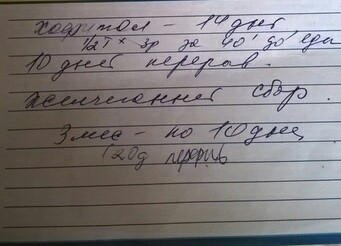 хофитол – 14 дней
1/2т × 3р за 40' до еды
10 дней перерыв.
желчегонный сбор.
3 мес – по 10 дней
20д перерыв